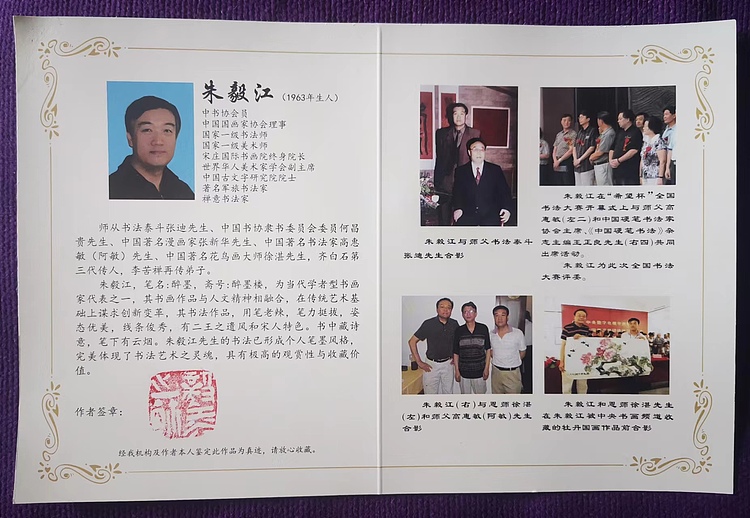 朱毅江（1963年生人）
中书协会员
中国国画家协会理事
国家一级书法师
国家一级美术师
宋庄国际书画院终身院长
世界华人美术家学会副主席
中国古文字研究院院士
著名军旅书法家
禅意书法家
师从书法泰斗张迪先生、中国书协隶书委员会委员何昌
贵先生、中国著名漫画家张新华先生、中国著名书法家高惠
敏（阿敏）先生、中国著名花鸟画大师徐湛先生，齐白石第
三代传人，李苦禅再传弟子。
朱毅江，笔名:醉墨，斋号:醉墨楼，为当代学者型书画
家代表之一，其书画作品与人文精神相融合，在传统艺术基
础上谋求创新变革，其书法作品，用笔老辣，笔力挺拔，姿
态优美，线条俊秀，有二王之遗风和宋人特色。书中藏诗
意，笔下有云烟。朱毅江先生的书法已形成个人笔墨风格，
完美体现了书法艺术之灵魂，具有极高的观赏性与收藏价
值。
作者签章：
经我机构及作者本人鉴定此作品为真迹，请放心收藏。
朱毅江与师父书法泰斗
张迪先生合影
朱毅江在“希望杯”全国
书法大赛开幕式上与师父高
惠敏(左二)和中国硬笔书法家
协会主席、《中国硬笔书法》杂
志主编王正良先生(右四)共同
出席活动。
朱毅江为此次全国书法
大赛评委。
朱毅江(右)与恩师徐湛
(左)和师父高惠敏(阿敏)先生
合影
朱毅江和恩师徐湛先生
在朱毅江被中央书画频道收
藏的牡丹国画作品前合影